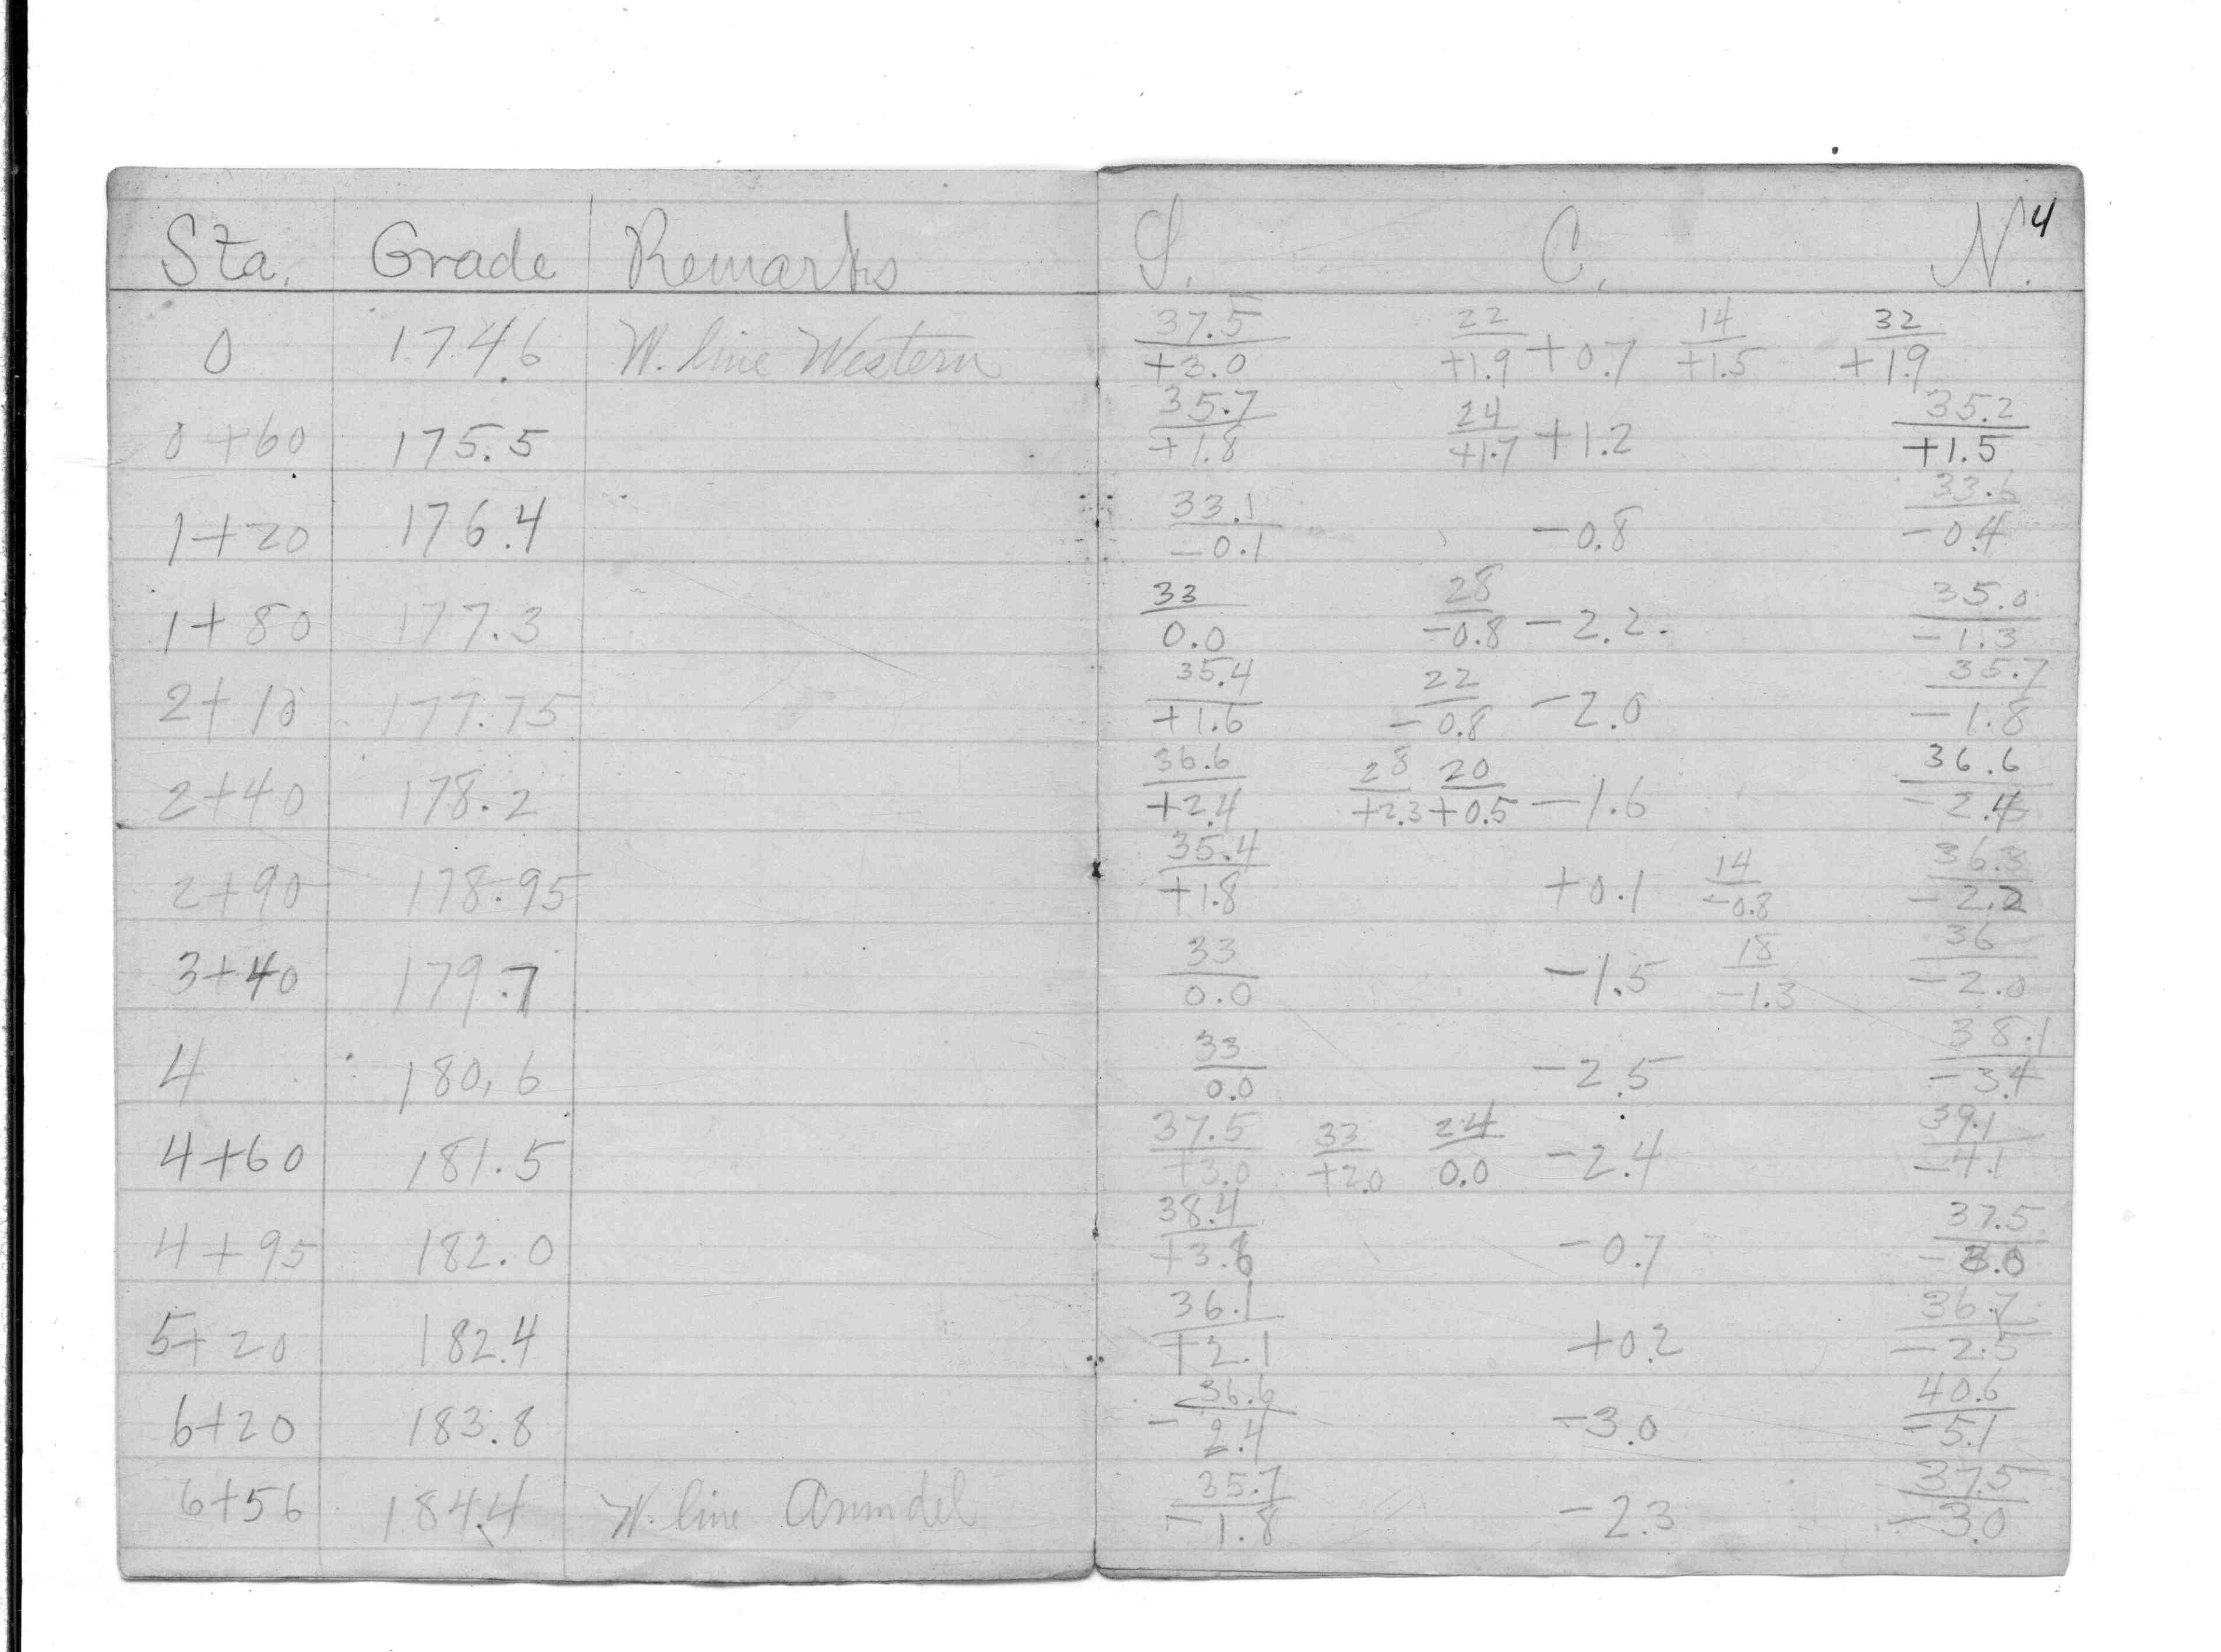 4
Sta. Grade Remarks S. C. N.
0 174.6 W. line Western 37.5/+3.0 22/+1.9 +0.7 14/+1.5 32/+1.9
0+60 175.5 35.7/+1.8 24/+1.7 +1.2 35.2/+1.5
1+20 176.4 33.1/-0.1 -0.8 33.6/-0.4
1+80 177.3 33/0.0 28/-0.8 -2.2 35.0/-1.3
2+10 177.75 35.4/+1.6 22/-0.8 -2.0 35.7/-1.8
2+40 178.2 36.6/+2.4 28/+2.3 20/+0.5 -1.6 36.6/-2.4
2+90 178.95 35.4/+1.8 +0.1 14/-0.8 36.3/-2.2
3+40 179.7 33/0.0 -1.5 18/-1.3 36/-2.0
4 180.6 33/0.0 -2.5 38.1/-3.4
4+60 181.5 37.5/+3.0 33/+2.0 24/0.0 -2.4 39.1/-4.1
4+95 182.0 38.4/+3.6 -0.7 37.5/-3.0
5+20 182.4 36.1/+2.1 +0.2 36.7/-2.5
6+20 183.8 36.6/-2.4 -3.0 40.6/-5.1
6+56 184.4 W. line Arundel 35.7/-1.8 -2.3 37.5/-3.0